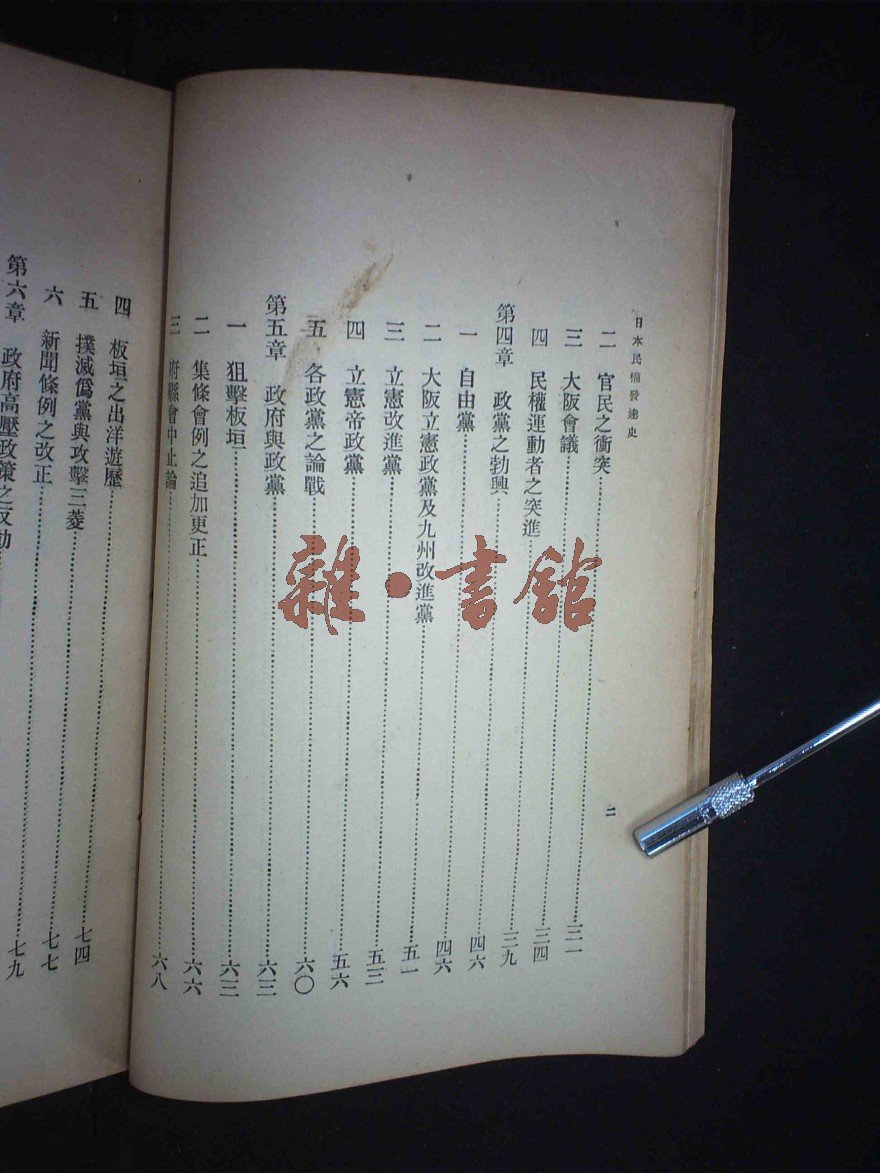 日本民權發達史
二 官民之衝突……三一
三 大阪會議……三四
四 民權運動者之突進……三九
第四章 政黨之勃興……四六
一 自由黨……四六
二 大阪立憲政黨及九州改進黨……五一
三 立憲改進黨……五三
四 立憲帝政黨……五六
五 各政黨之論戰……六〇
第五章 政府與政黨……六三
一 狙擊板垣……六三
二 集條會例之追加更正……六六
三 府縣會中止論……六八
二
四 板垣之出洋遊歷……七四
五 撲滅僞黨與攻擊三菱……七七
六 新聞條例之改正……七九
第六章 政府高壓政策之反動
雜·書館